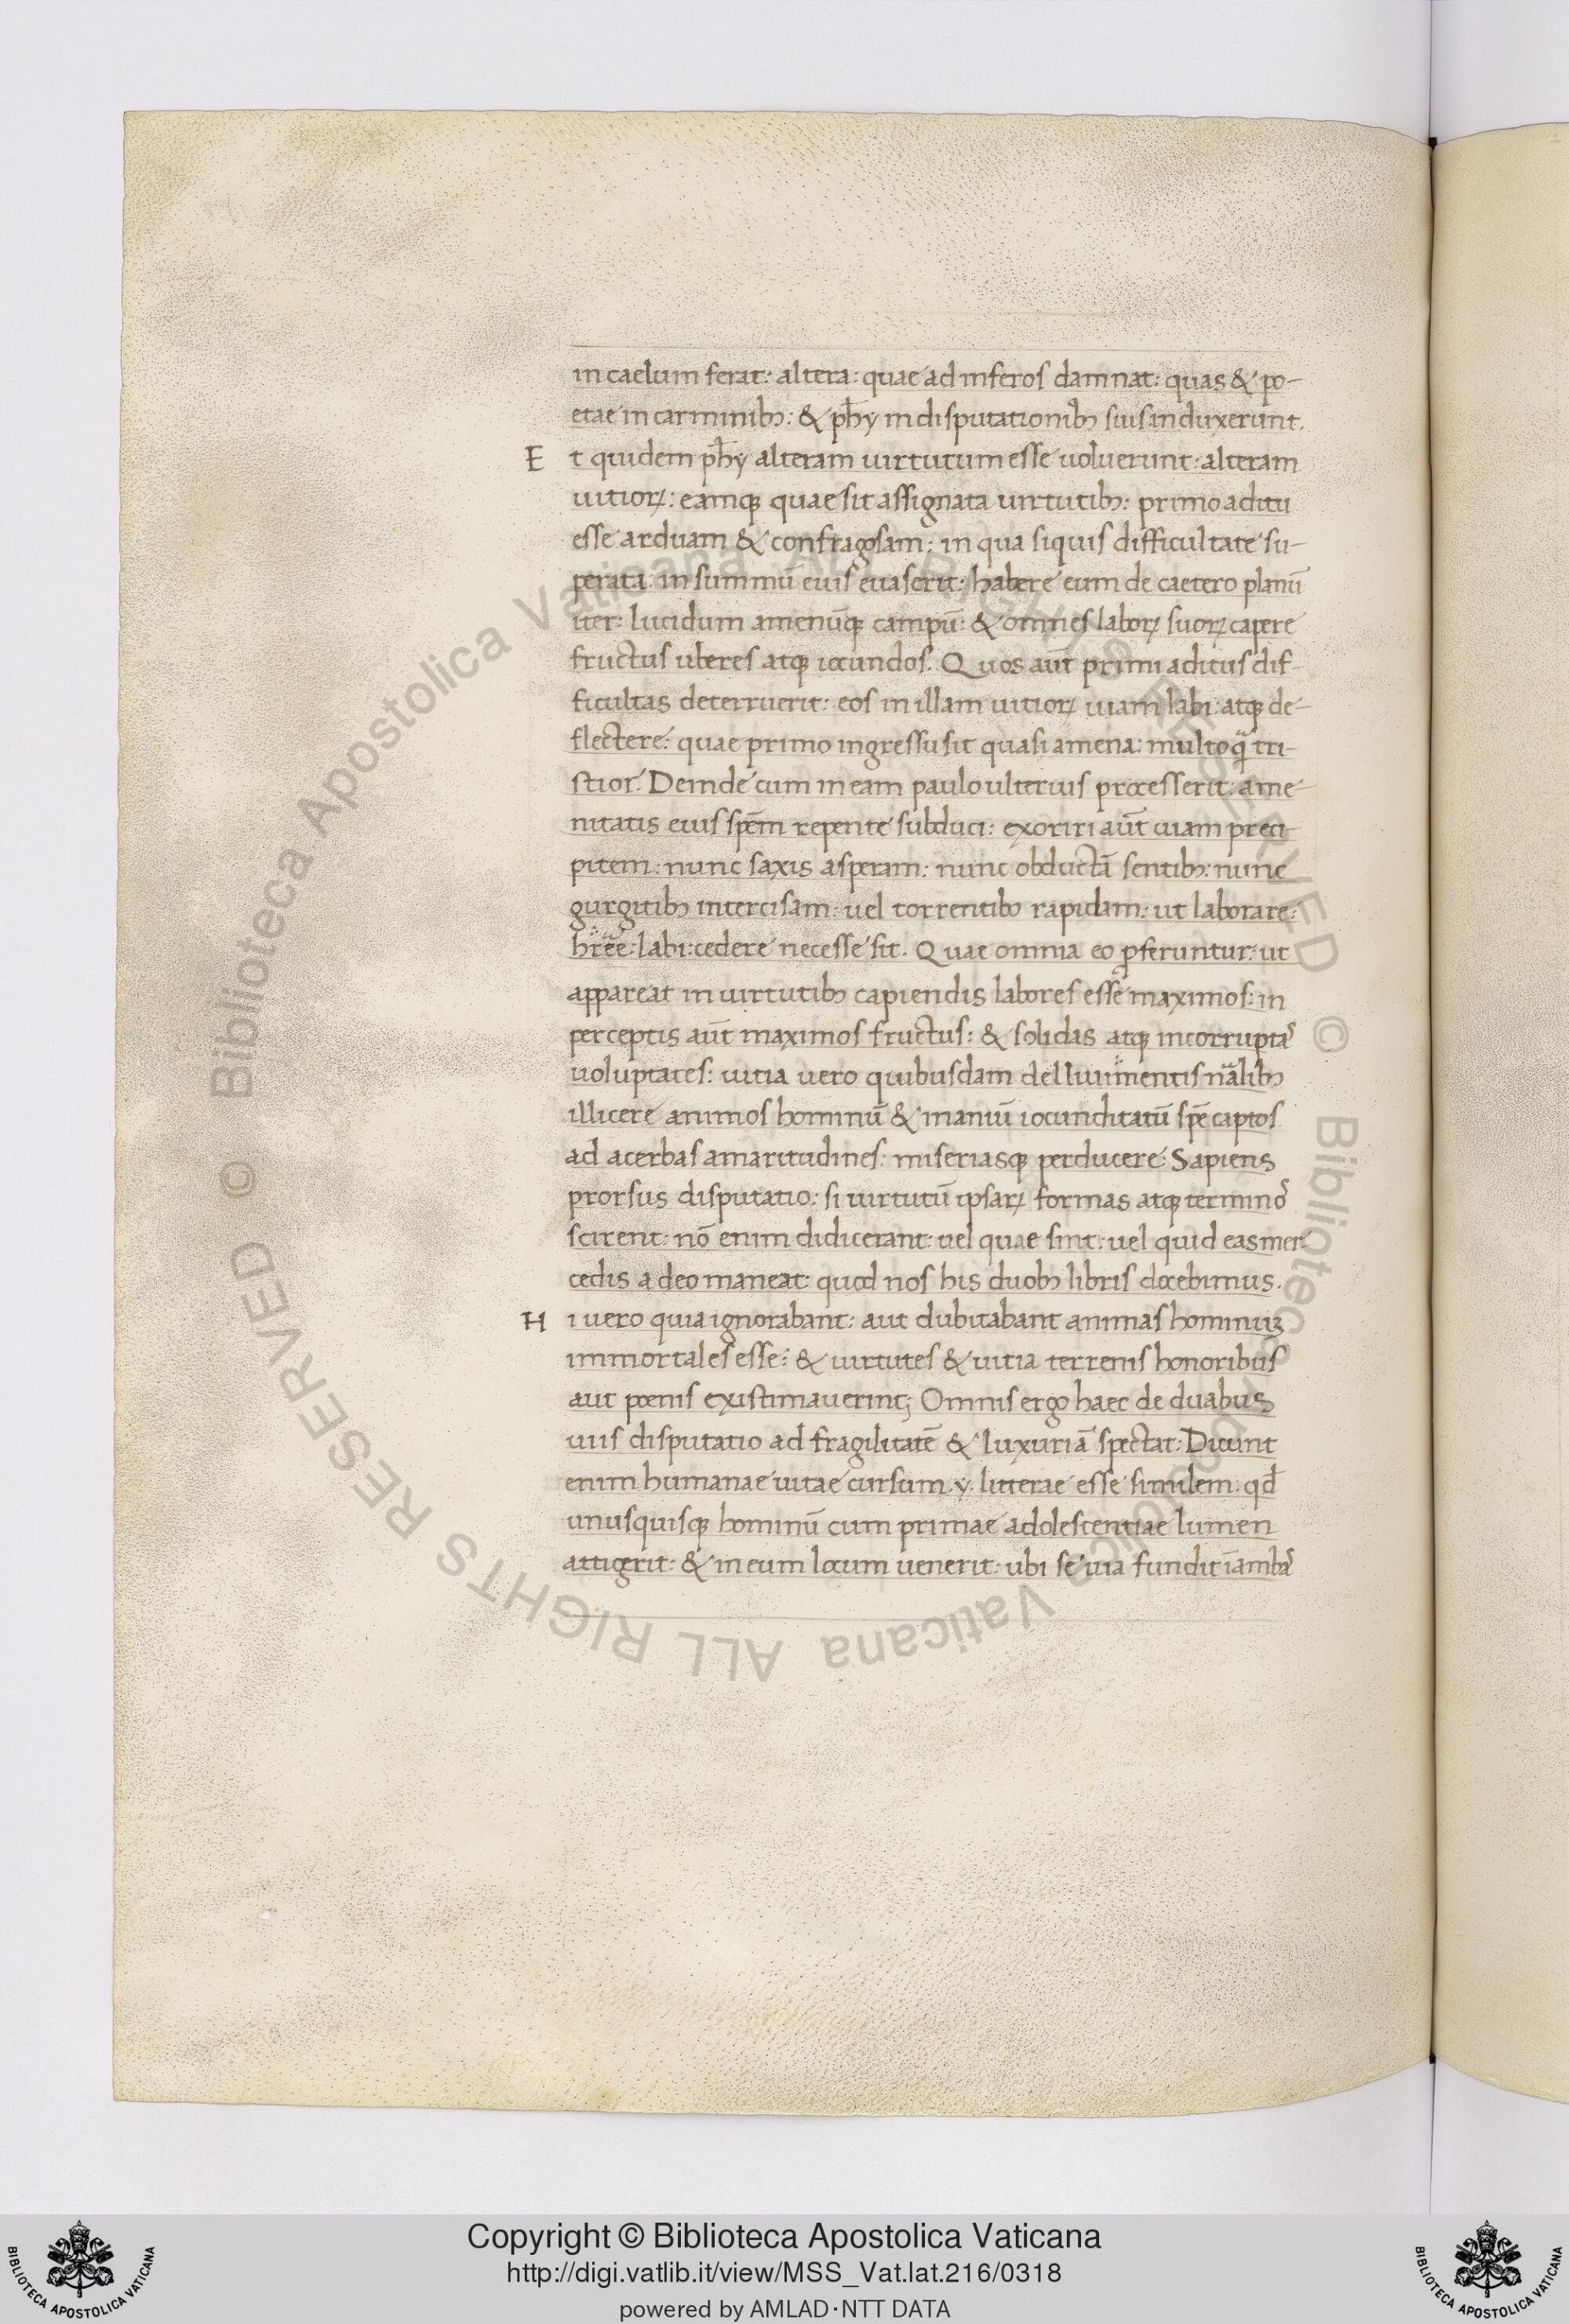 in caelum ferat: altera: quae ad inferos damnat: quas & po-
etae in carminibꝫ: & phỹ in disputationibꝫ suis induxerunt.
E t quidem phỹ alteram uirtutum esse uoluerunt: alteram
uitioꝝ: eamqꝫ quae sit assignata uirtutibꝫ: primo aditu
esse arduam & confragosam: in qua siquis difficultate su-
perata in summū euis euaserit: habere eum de caetero planū
iter: lucidum amenūqꝫ campū: & omnes laboꝝ suoꝝ capere
fructus uberes atqꝫ iocundos. Quos aūt primi aditus dif-
ficultas deterruerit: eos in illam uitioꝝ uiam labi: atqꝫ de-
flectere: quae primo ingressu sit quasi amena: multoq̃ tri-
stior. Deinde cum in eam paulo ulterius processerit: ame
nitatis euis spēm repente subduci: exoriri aūt uiam preci
pitem: nunc saxis asperam: nunc obductā sentibꝫ: nunc
gurgitibꝫ intercisam: uel torrentibꝫ rapidam: ut laborare:
hrēe: labi: cedere necesse sit. Quae omnia eo ꝓferuntur: ut
appareat in uirtutibꝫ capiendis labores esse maximos: in
perceptis aūt maximos fructus: & solidas atqꝫ incorruptaˢ
uoluptates: uitia uero quibusdam delluimentis nālibꝫ
illicere animos hominū & inaniū iocunditatū spē captos
ad acerbas amaritudines: miseriasqꝫ perducere: Sapiens
prorsus disputatio: si uirtutū ipsaꝝ formas atqꝫ terminoˢ
scirent: nō enim didicerant: uel quae sint: uel quid eas mer-
cedis a deo maneat: quod nos his duobꝫ libris docebimus.
H i uero quia ignorabant: aut dubitabant animas hominuꝫ
immortales esse: & uirtutes & uitia terrenis honoribus
aut poenis existimauerint; Omnis ergo haec de duabus
uiis disputatio ad fragilitatē & luxuriā spectat: Dicunt
enim humanae uitae cursum .y. litterae esse similem: qđ
unusquisqꝫ hominū cum primae adolescentiae lumen
attigerit: & in eum locum uenerit: ubi se uia fundit ī ambaˢ
Biblioteca Apostolica Vaticana ALL RIGHTS RESERVED ©
Biblioteca Apostolica Vaticana ALL RIGHTS RESERVED ©
BIBLIOTECA APOSTOLICA VATICANA
Copyright © Biblioteca Apostolica Vaticana
http://digi.vatlib.it/view/MSS_Vat.lat.216/0318
powered by AMLAD·NTT DATA
BIBLIOTECA APOSTOLICA VATICANA